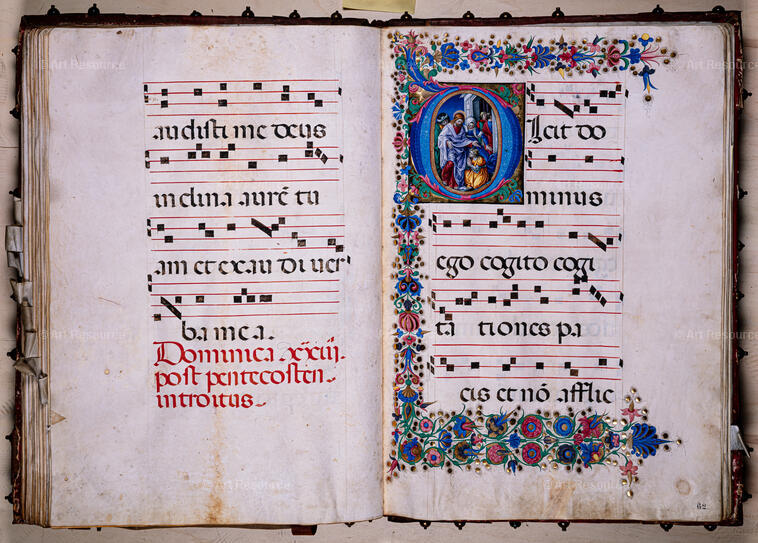 audisti me deus
inclina aurē tu
am et exau di ver
ba mea.
Dominica xxiii.
post pentecosten
introitus
DIcit do
minus
ego cogito cogi
ta tiones pa
cis et nō afflic
62
© Art Resource